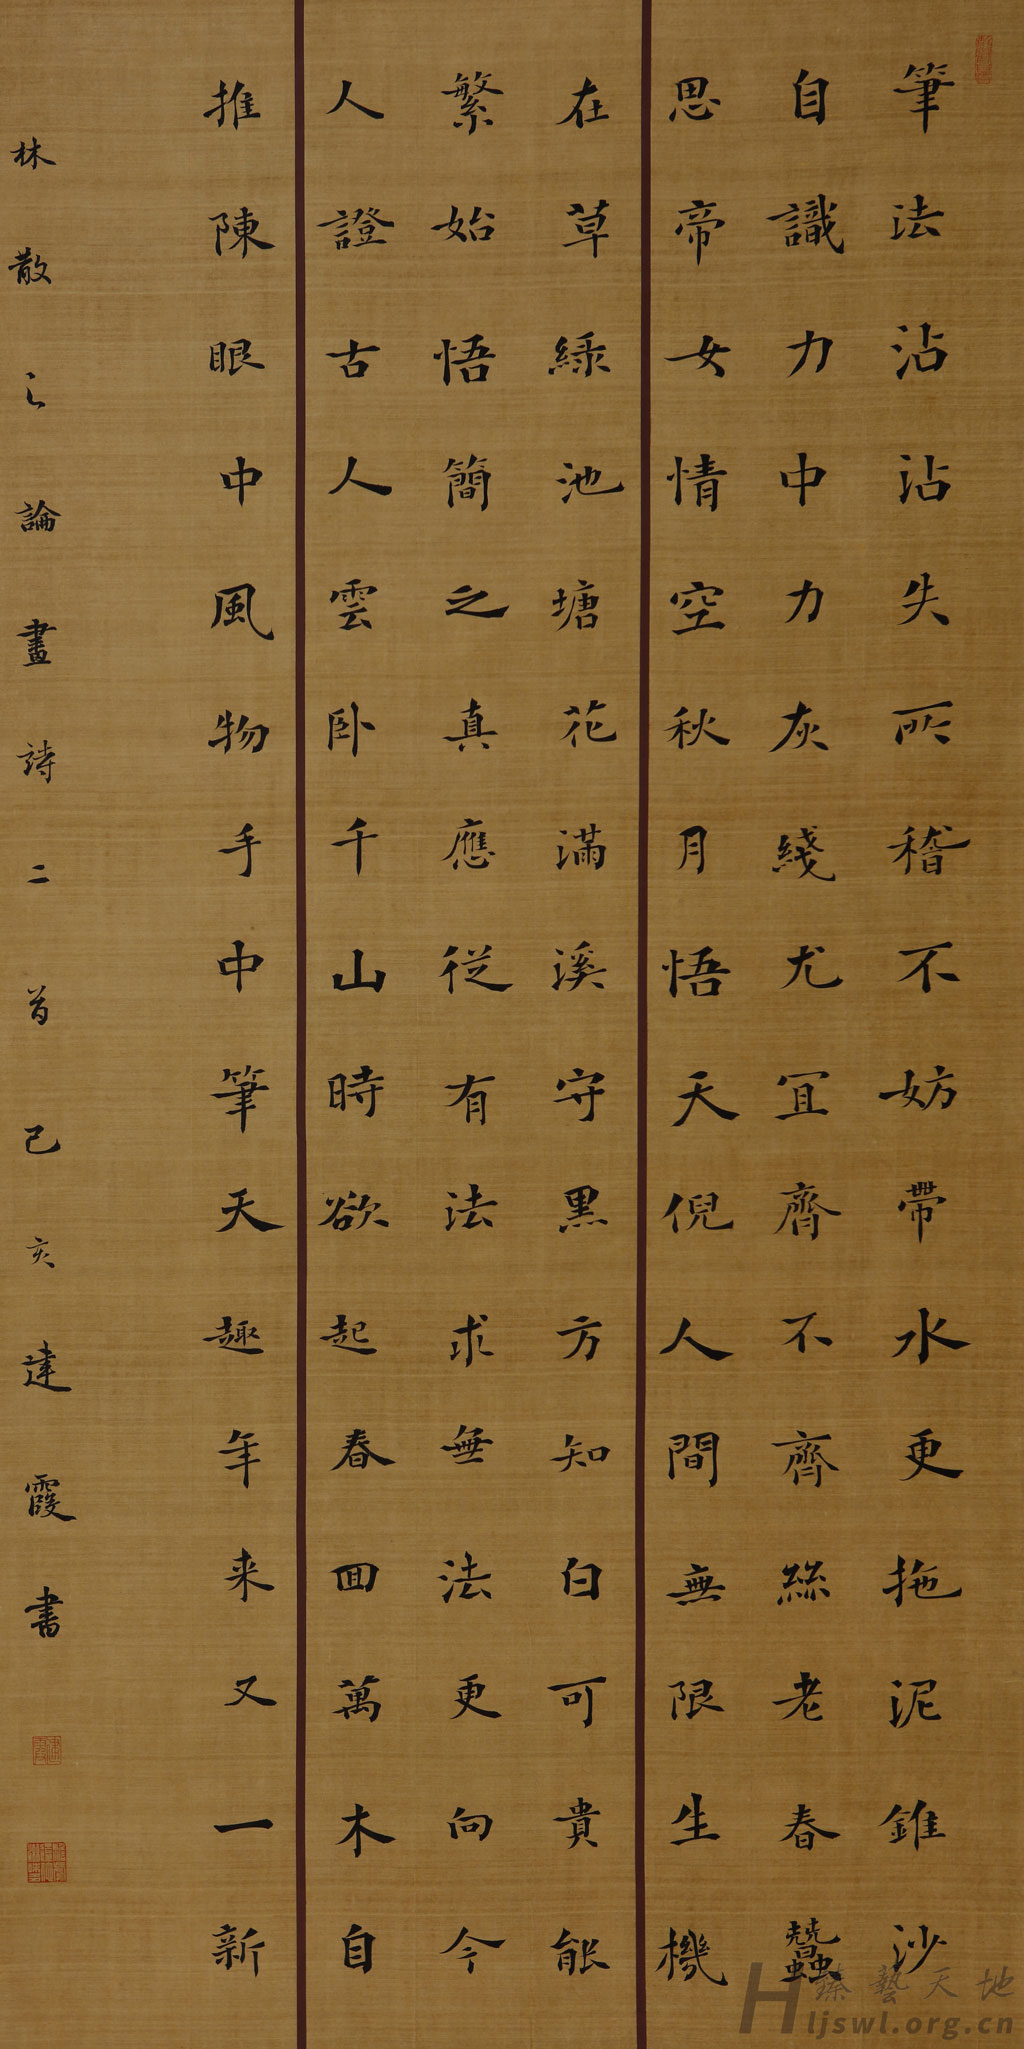 筆法沾沾失所稽不妨帶水更拖泥錐沙
自識力中力灰綫尤宜齊不齊絲老春蠶
思帝女情空秋月悟天倪人間無限生機
在草綠池塘花滿溪守黑方知白可貴能
繁始悟簡之真應從有法求無法更向今
人證古人雲卧千山時欲起春回萬木自
推陳眼中風物手中筆天趣年来又一新
林散之論畫詩二首己亥建霞書
臻藝天地
Hljswl.org.cn